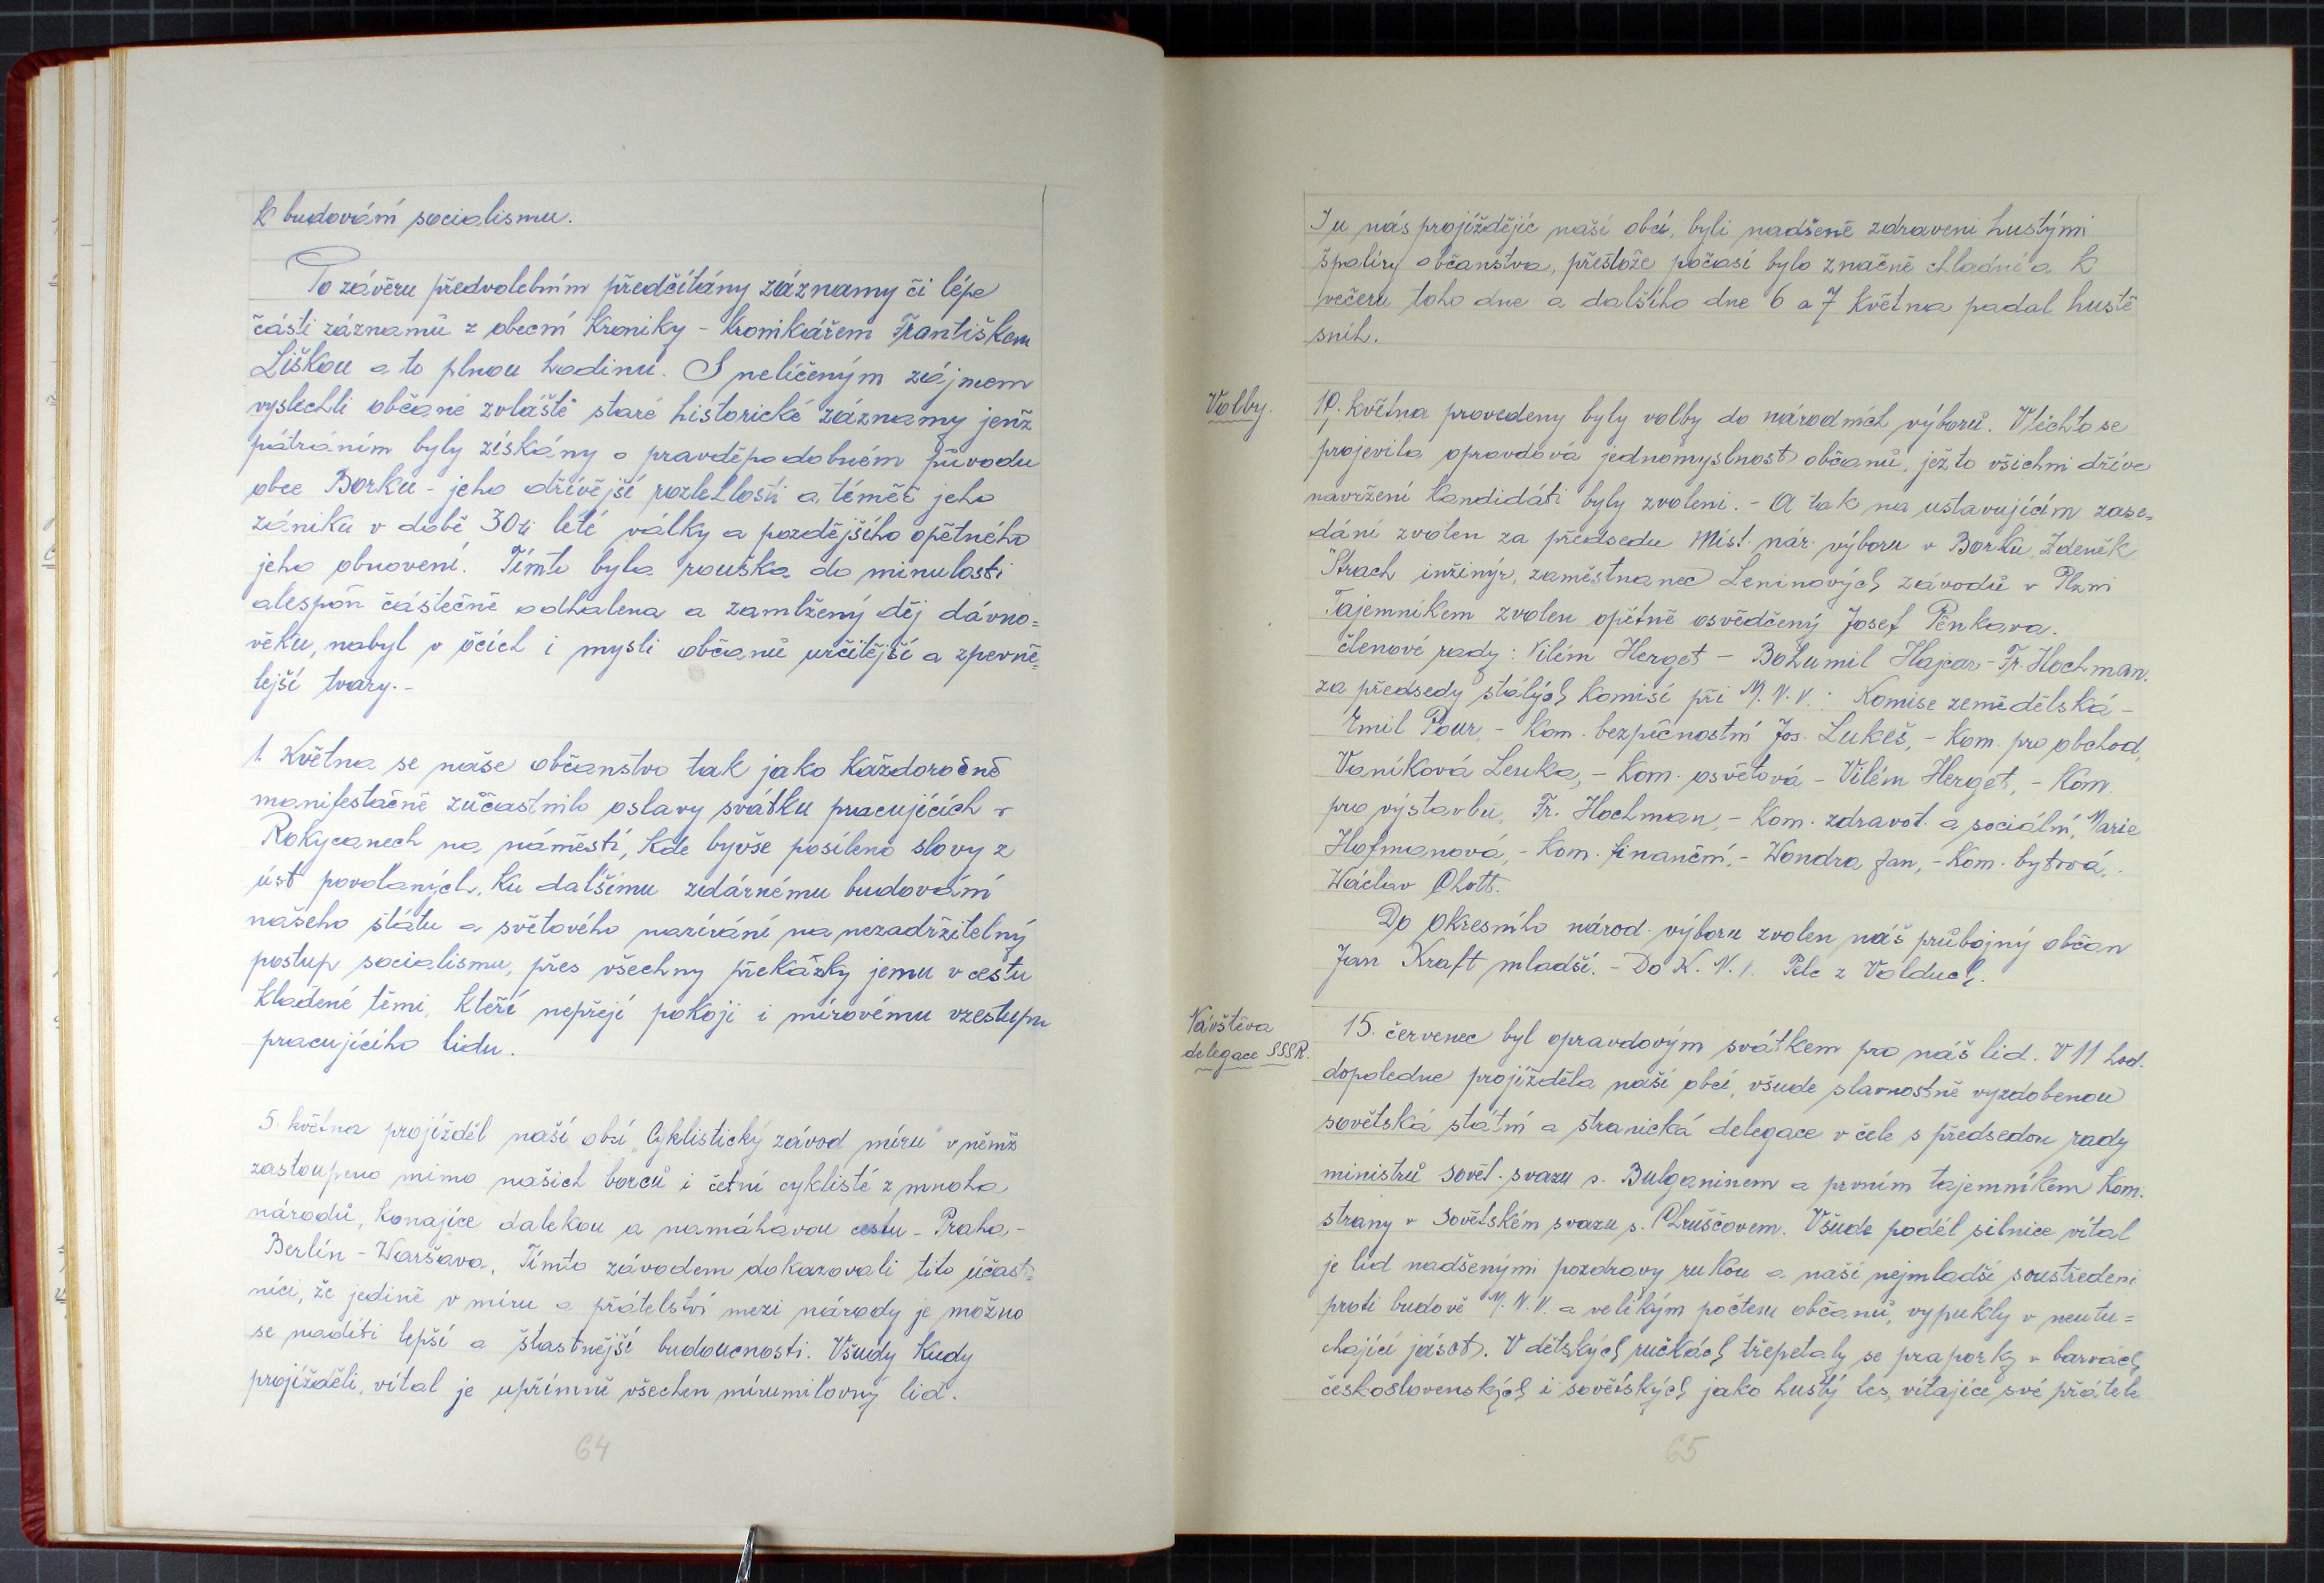 k budování socialismu.
Po závěru předvolebním předčítány záznamy či lépe
části záznamů z obecní kroniky - kronikářem Františkem
Liškou a to plnou hodinu. S nelíčeným zájmem
vyslechli občané zvláště staré historické záznamy jenž
pátráním byly získány o pravděpodobném původu
obce Borku - jeho dřívější rozlehlosti a téměř jeho
zániku v době 30ti leté války a pozdějšího opětného
jeho obnovení. Tímto byla rouška do minulosti
alespoň částečně odhalena a zamlžený děj dávno=
věku, nabyl v očích i mysli občanů určitější a zpevně=
lejší tvary.-
1. Května se naše občanstvo tak jako každoročně
manifestačně zůčastnilo oslavy svátku pracujících v
Rokycanech na náměstí, kde byvše posíleno slovy z
úst povolaných, ku dalšímu zdárnému budování
našeho státu a světového nazírání na nezadržitelný
postup socialismu, přes všechny překážky jemu v cestu
kladené těmi, kteří nepřejí pokoji i mírovému vzestupu
pracujícího lidu.
5. května projížděl naší obcí „Cyklistický závod míru" v němž
zastoupeno mimo našich borců i četní cyklisté z mnoha
národů, konajíce dalekou a namáhavou cestu - Praha -
Berlín - Waršava. Tímto závodem dokazovali tito účast=
níci, že jedině v míru a přátelství mezi národy je možno
se nadíti lepší a šťastnější budoucnosti. Všudy kudy
projížděli, vítal je upřímně všechen mírumilovný lid.
64
Tu nás projíždějíc naší obcí, byli nadšeně zdraveni hustými
špalíry občanstva, přestože počasí bylo značně chladné a k
večeru toho dne a dalšího dne 6 a 7 května padal hustě
sníh.
Volby.
19. května provedeny byly volby do národních výborů. V těchto se
projevila opravdová jednomyslnost občanů, ježto všichni dříve
navržení kandidáti byly zvoleni. - A tak na ustavujícím zase=
dání zvolen za předsedu Míst. nár. výboru v Borku, Zdeněk
Strach inžinýr, zaměstnanec Leninových závodů v Plzni
Tajemníkem zvolen opětně osvědčený Josef Pěnkava.
členové rady: Vilém Herget - Bohumil Hajcar - Fr. Hochman.
za předsedy stálých komisí při M.N.V.: Komise zemědělská -
Emil Pour, - Kom. bezpečnostní Jos. Lukeš, - Kom. pro obchod,
Vaníková Lenka, - Kom. osvětová - Vilém Herget, - Kom.
pro výstavbu, Fr. Hochman, - Kom. zdravot. a sociální, Marie
Hofmanová, - Kom. finanční, - Wondra Jan, - Kom. bytová,
Wáclav Chott.
Do Okresního národ. výboru zvolen náš průbojný občan
Jan Kraft mladší. - Do K.N.V. Pelc z Volduch.
Návštěva
delegace SSSR.
15. červenec byl opravdovým svátkem pro náš lid. V 11 hod.
dopoledne projížděla naší obcí, všude slavnostně vyzdobenou
sovětská státní a stranická delegace v čele s předsedou rady
ministrů sovět. svazu s. Bulganinem a prvním tajemníkem Kom.
strany v Sovětském svazu s. Chruščovem. Všude podél silnice vítal
je lid nadšenými pozdravy rukou a naší nejmladší soustředeni
proti budově M.N.V. a velikým počtem občanů, vypukly v neutu=
chající jásot. V dětských ručkách třepetaly se praporky v barvách
československých i sovětských jako hustý les, vítajíce své přátele
65